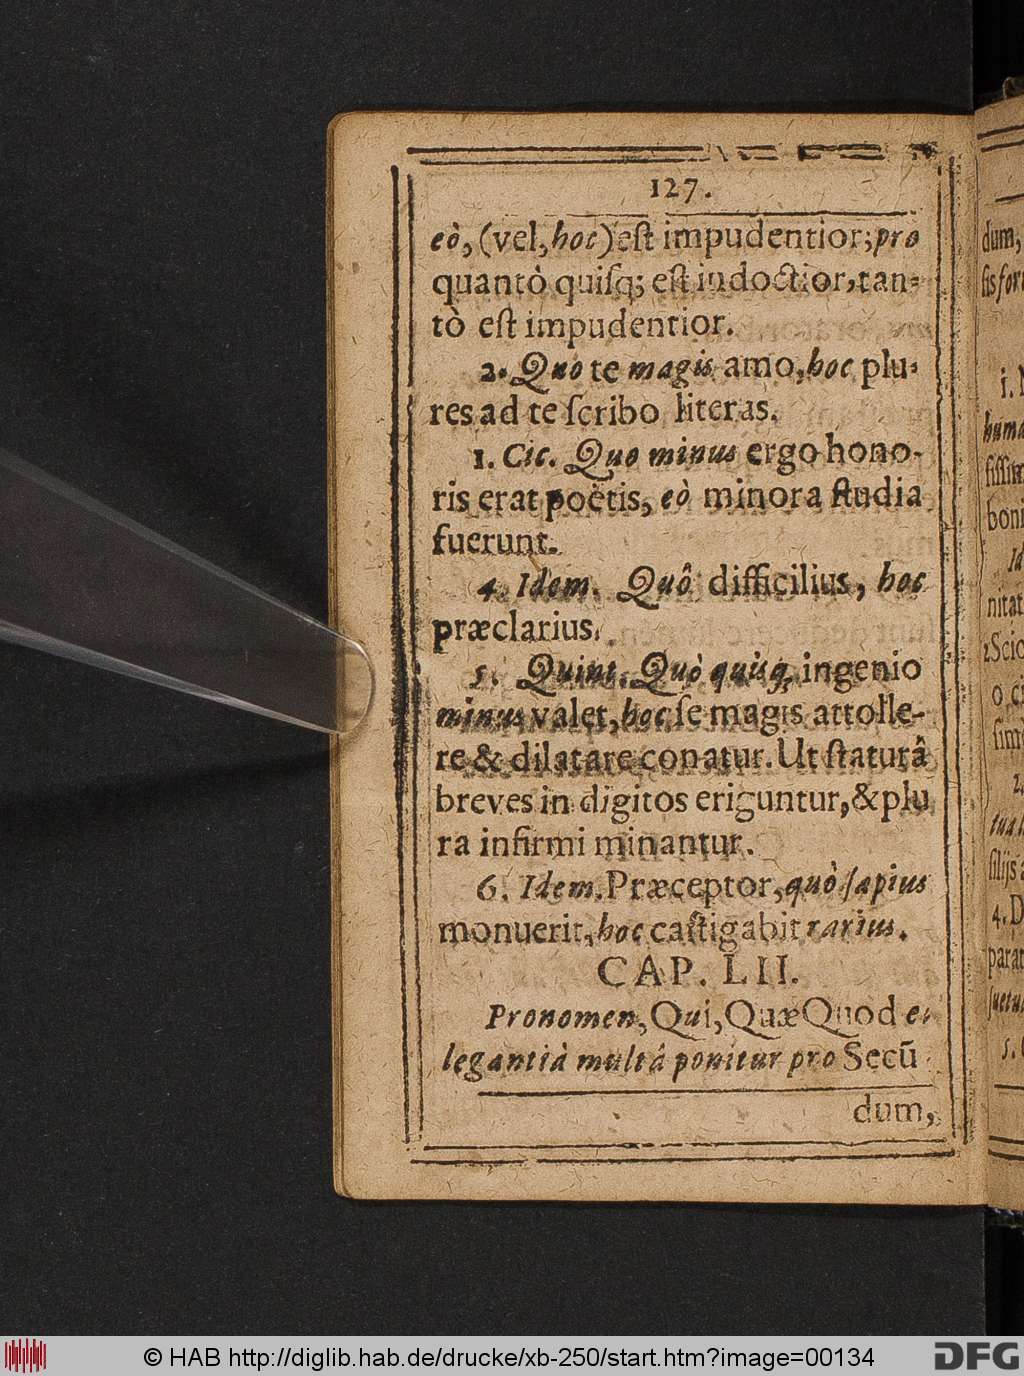 127.
eò, (vel, hoc) eſt impudentior; pro
quantò quiſq; eſt indoctior, tan-
tò eſt impudentior.
2. Quo te magis amo, hoc plu-
res ad te ſcribo literas.
1. Cic. Quo minus ergo hono-
ris erat poëtis, eò minora ſtudia
fuerunt.
4. Idem. Quô difficilius, hoc
præclarius.
5. Quint. Quò quisq; ingenio
minus valet, hoc ſe magis attolle-
re & dilatare conatur. Ut ſtaturâ
breves in digitos eriguntur, & plu
ra infirmi minantur.
6. Idem. Præceptor, quò ſapius
monuerit, hoc caſtigabit rarius.
CAP. LII.
Pronomen, Qui, Quæ Quod e-
legantiâ multâ ponitur pro Secū
dum,
dum,
sis for
i.
huma
boni
nitat
2 Scio
o
2.
tua
filijs
4. D
parat
5.
© HAB http://diglib.hab.de/drucke/xb-250/start.htm?image=00134
DFG